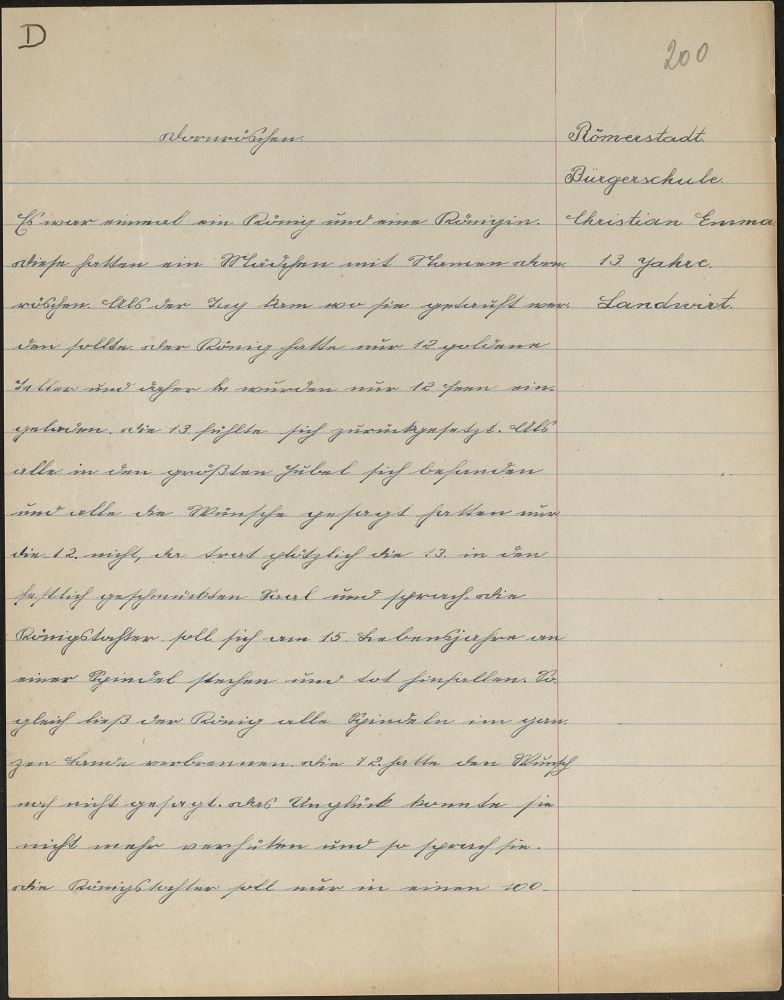 D
200
Dornröschen.
Römerstadt.
Bürgerschule.
Es war einmal ein König und eine Königin.
Christian Emma
Diese hatten ein Mädchen mit Namen Dorn-
13 Jahre.
röschen. Als der Tag kam wo sie getauft wer-
Landwirt.
den sollte. Der König hatte nur 12 goldene
Teller und daher wurden nur 12 Feen ein-
geladen. Die 13 fühlte sich zurückgesetzt. Als
alle in den größten Jubel sich befanden
und alle die Wünsche gesagt hatten nur
die 12. nicht, da trat plötzlich die 13. in den
festlich geschmückten Saal und sprach. Die
Königstochter soll sich am 15. Lebensjahre an
einer Spindel stechen und tot hinfallen. So-
gleich ließ der König alle Spindeln im gan-
zen Lande verbrennen. Die 12. hatte den Wunsch
noch nicht gesagt. Das Unglück konnte sie
nicht mehr verhüten und so sprach sie.
Die Königstochter soll nur in einen 100-